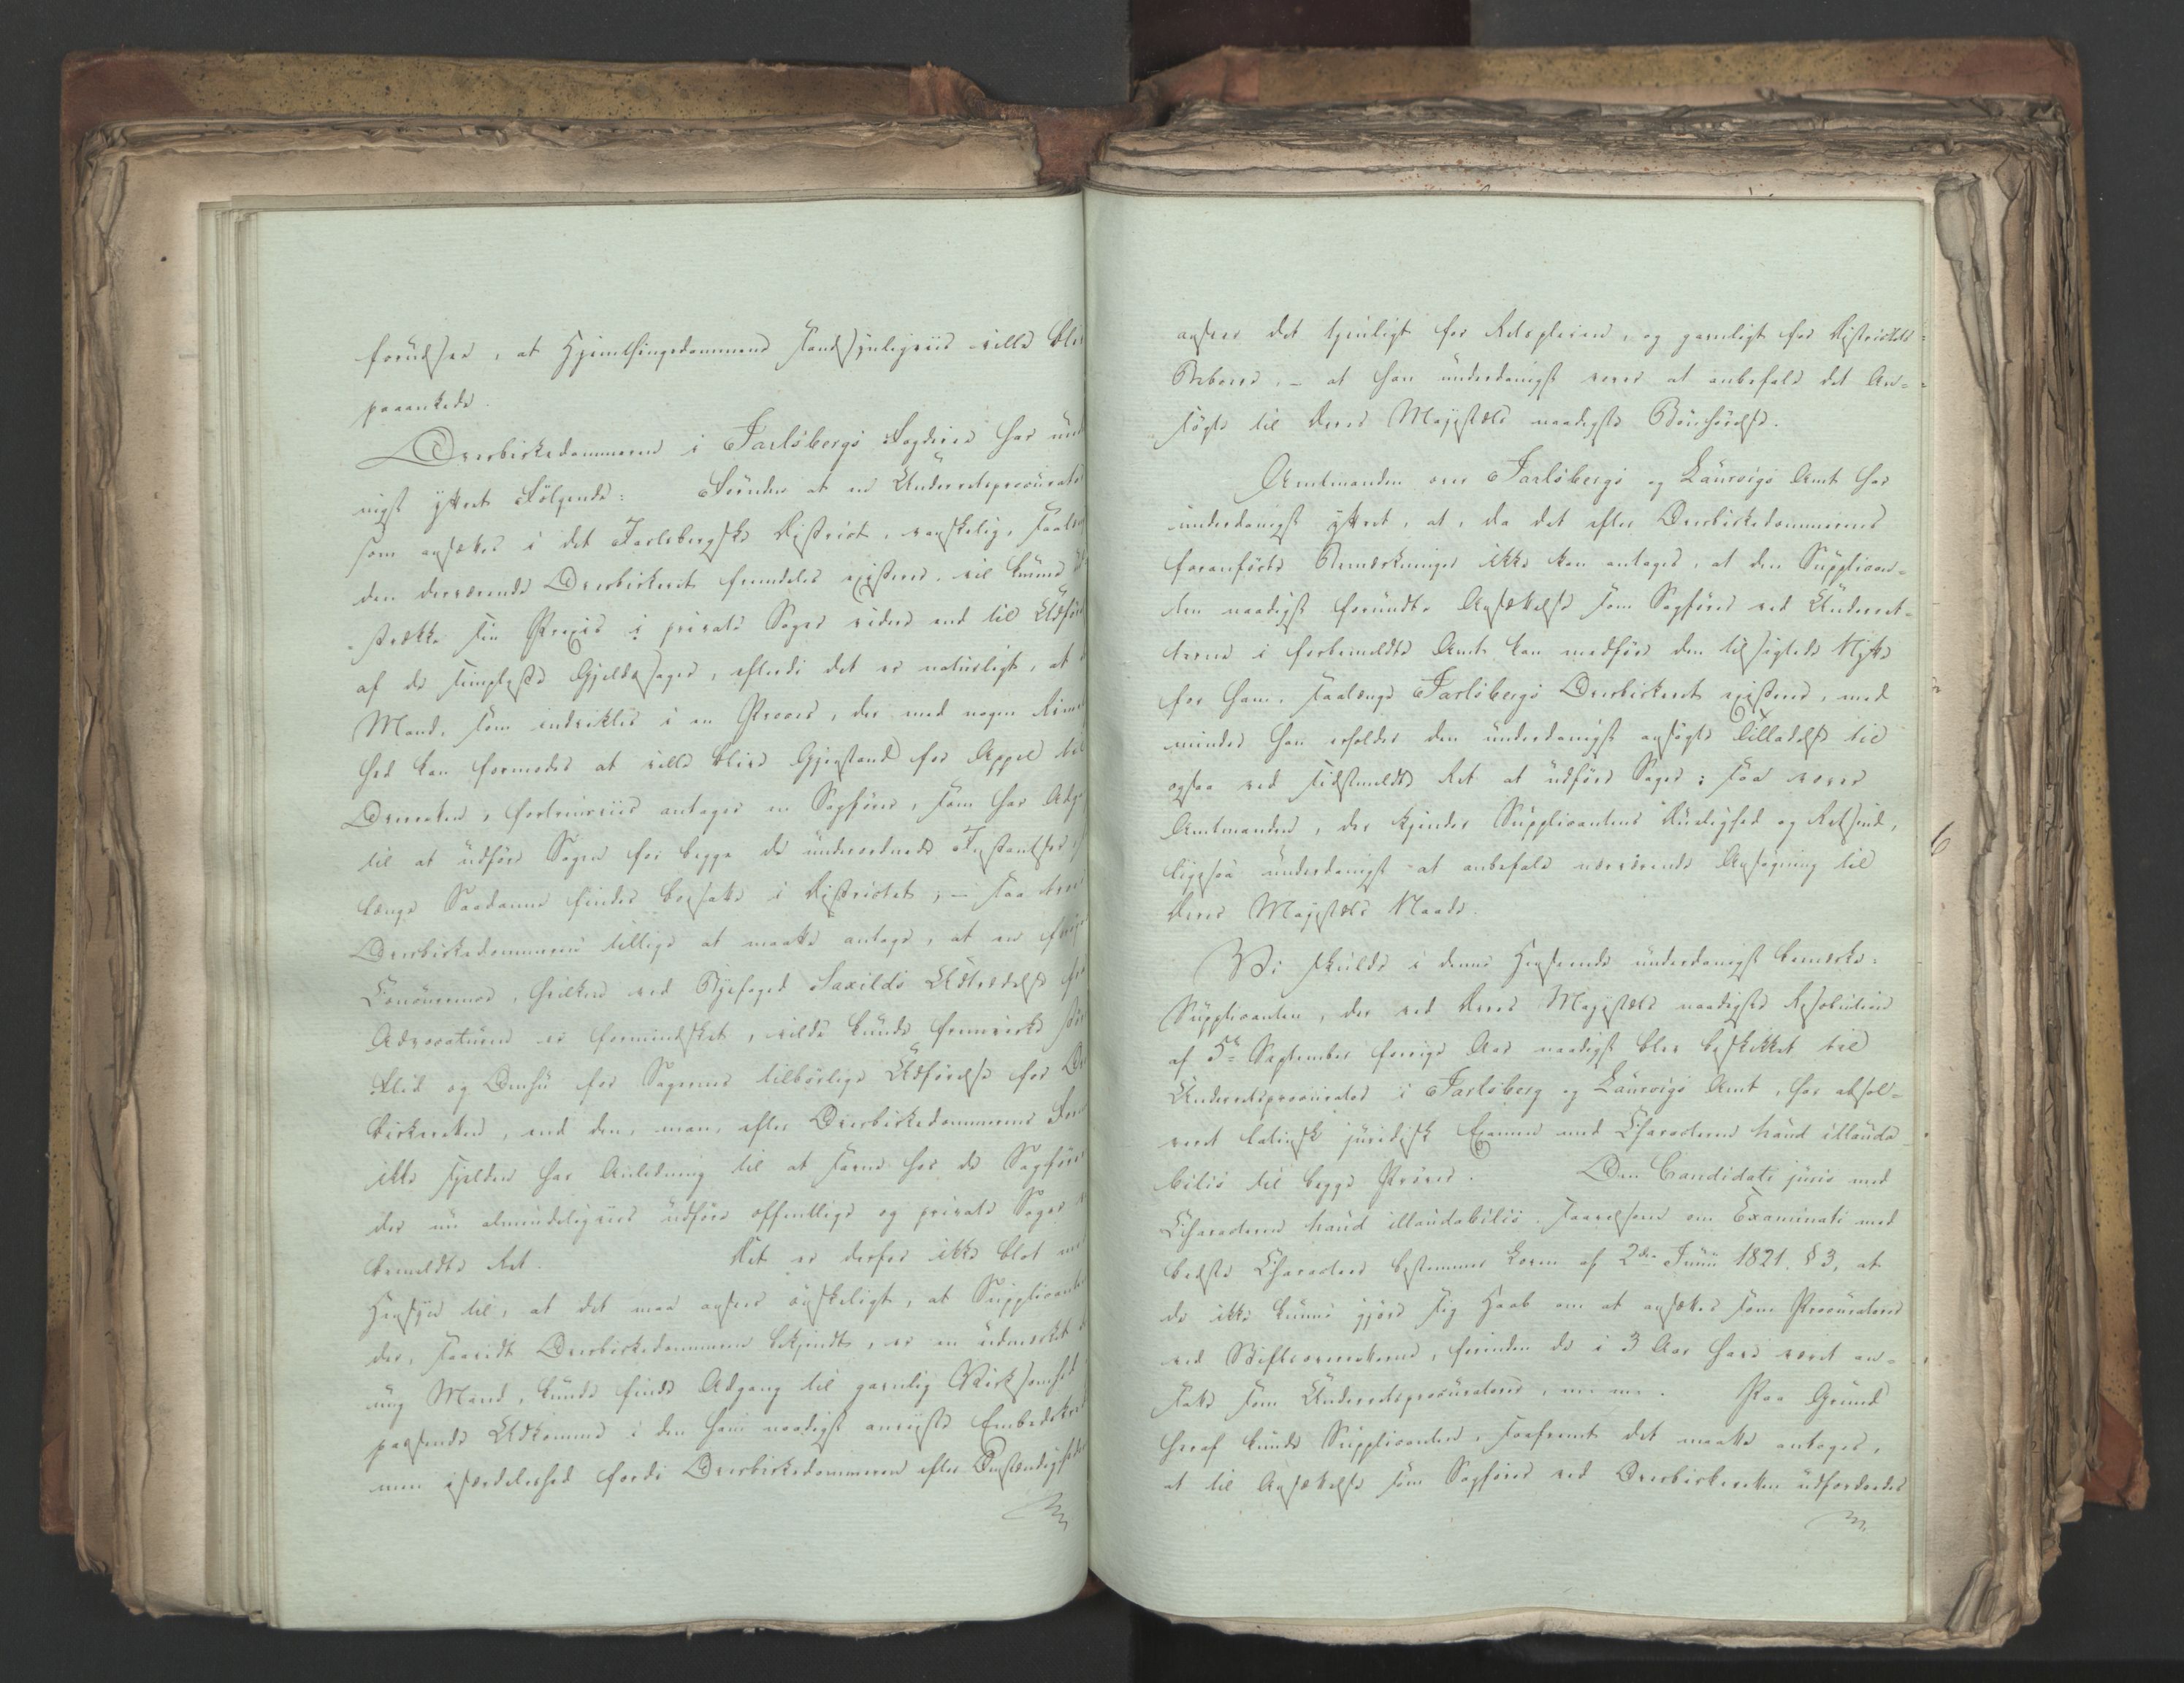 forudsee, at Hjemthingsdommene sandsynligviis ville blive
paaankede.
Overbirkedommeren i Jarlsbergs Fogderie har under
nigst yttret Følgende: Foruden at en Underretsprocurator
som ansættes i det Jarlsbergske District, vanskelig, saalænge
den derværende Overbirkeret fremdeles existerer, vil kunne ud
strække sin Praxis i private Sager videre end til Udførelse
af de simpleste Gjeldssager, efterdi det er naturligt, at
Mand, som indvikles i en Proces, der med nogen Rime
hed kan formodes at ville blive Gjenstand for Appel til
Overretten, fortrinsviis antager en Sagfører, som har Adgang
til at udføre Sagen for begge de underordnede Instantser
længe Saadanne findes bosatte i Districtet, – saa troer
Overbirkedommeren tillige at maatte antage, at en friere
Concurrence, hvilken ved Byefoged Saxilds Udtrædelse fra
Advocaturen er formindsket, vilde kunde fremvirke større
Flid og Omhu for Sagernes tilbørlige Udførelse for Over
birkeretten, end den, man, efter Overbirkedommerens Formening
ikke sjelden har Anledning til at savne hos de Sagførere
der nu almindeligviis udføre offentlige og private Sager ved
bemeldte Ret. Det er derfor ikke blot med
Hensyn til, at det maa ansees ønskeligt, at Supplicanten
der, saavidt Overbirkedommeren bekjendt, er en udmærket
ung Mand, kunde finde Adgang til gavnlig Virksomhed
passende Udkomme i den ham naadigst anviiste Embedskreds
men i særdeleshed fordi Overbirkedommeren efter Omstændighederne
anseer det tjenligt for Retspleien, og gavnligt for Districtets
Beboere, – at han underdanigst vover at anbefale det An-
søgte til Deres Majestæts naadigste Bønhørelse.
Amtmanden over Jarlsbergs og Laurvigs Amt har
underdanigst yttret, at, da det efter Overbirkedommerens
foranførte Bemærkninger ikke kan antages, at den Supplican-
ten naadigst forundte Ansættelse som Sagfører ved Underret-
terne i forbemeldte Amt kan medføre den tilsigtede Nytte
for ham, saalænge Jarlsbergs Overbirkeret existerer, med
mindre han erholder den underdanigst ansøgte Tilladelse til
ogsaa ved sidstmeldte Ret at udføre Sager; saa vover
Amtmanden, der kjender Supplicantens Duelighed og Retsind,
ligesaa underdanigst at anbefale nærværende Ansøgning til
Deres Majestæts Naade.
Vi skulde i denne Henseende underdanigst bemærke:
Supplicanten, der ved Deres Majestæts naadigste Resolution
af 5te September forrige Aar naadigst blev beskikket til
Underretsprocurator i Jarlsberg og Laurvigs Amt, har absol-
veret latinsk juridisk Examen med Characteren haud illauda-
bilis til begge Prøver. Om Candidati juris med
Characteren haud illaudabilis, saavelsom om Examinati med
bedste Character bestemmer Loven af 2den Junii 1821. § 3, at
de ikke kunne gjøre sig Haab om at ansættes som Procuratorer
ved Stiftsoverretterne, forinden de i 3 Aar have været an-
satte som Underretsprocuratorer, m. m. Paa Grund
heraf kunde Supplicanten, saafremt det maatte antages,
at til Ansættelse som Sagfører ved Overbirkeretten udfordredes